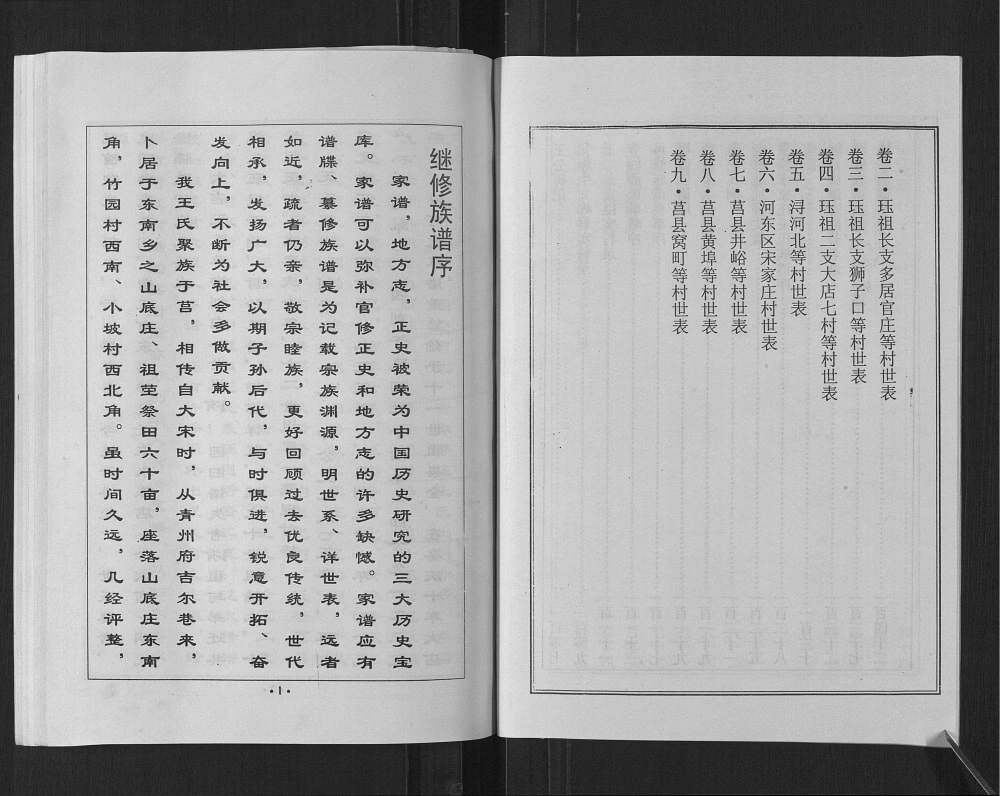 卷二·珏祖长支多居官庄等村世表
卷三·珏祖长支狮子口等村世表
卷四·珏祖二支大店七村等村世表
卷五·浔河北等村世表
卷六·河东区宋家庄村世表
卷七·莒县井峪等村世表
卷八·莒县黄埠等村世表
卷九·莒县窝町等村世表
继修族谱序
家谱，地方志，正史被荣为中国历史研究的三大历史宝
库。家谱可以弥补官修正史和地方志的许多缺憾。家谱应有
谱牒、纂修族谱是为记载宗族渊源，明世系、详世表，远者
如近，疏者仍亲，敬宗睦族，更好回顾过去优良传统，世代
相承，发扬广大，以期子孙后代，与时俱进，锐意开拓、奋
发向上，不断为社会多做贡献。
我王氏聚族于莒，相传自大宋时，从青州府吉尔巷来，
卜居于东南乡之山底庄、祖茔祭田六十亩，座落山底庄东南
角，竹园村西南、小坡村西北角。虽时间久远，几经评整，
·1·